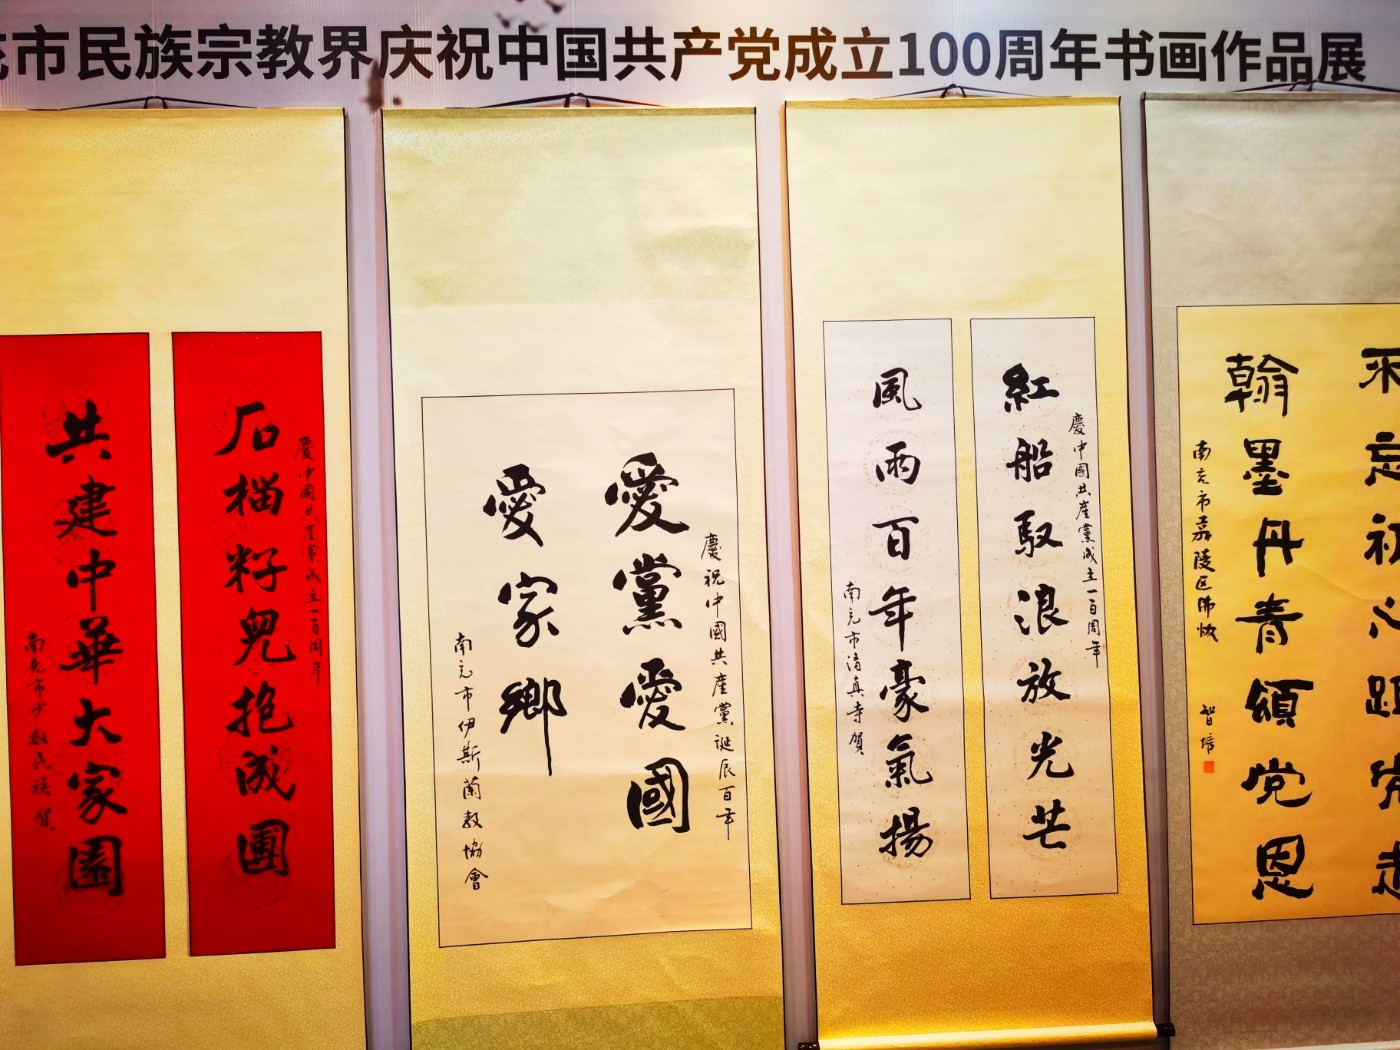 市民族宗教界庆祝中国共产党成立100周年书画作品展
慶中國共產黨成立一百周年
石榴籽兒抱成團
共建中華大家園
南充市少数民族賀
慶祝中國共產黨誕辰百年
愛黨愛國
愛家鄉
南充市伊斯蘭教協會
慶中國共產黨成立一百周年
紅船馭浪放光芒
風雨百年豪氣揚
南充市清真寺賀
不忘初心跟党走
翰墨丹青頌党恩
南充市嘉陵区佛協